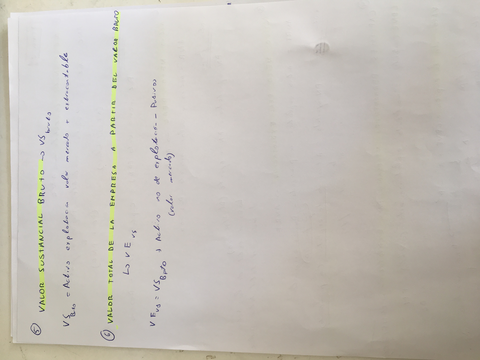 ⑤ VALOR SUSTANCIAL BRUTO → VS Bruto
VS Bto = Activo explotación valor mercado o extracontable
⑥ VALOR TOTAL DE LA EMPRESA A PARTIR DEL VALOR BRUTO
↳ VE VS
VE VS = VS Bruto + Activo no de explotación - Pasivo
(valor mercado)